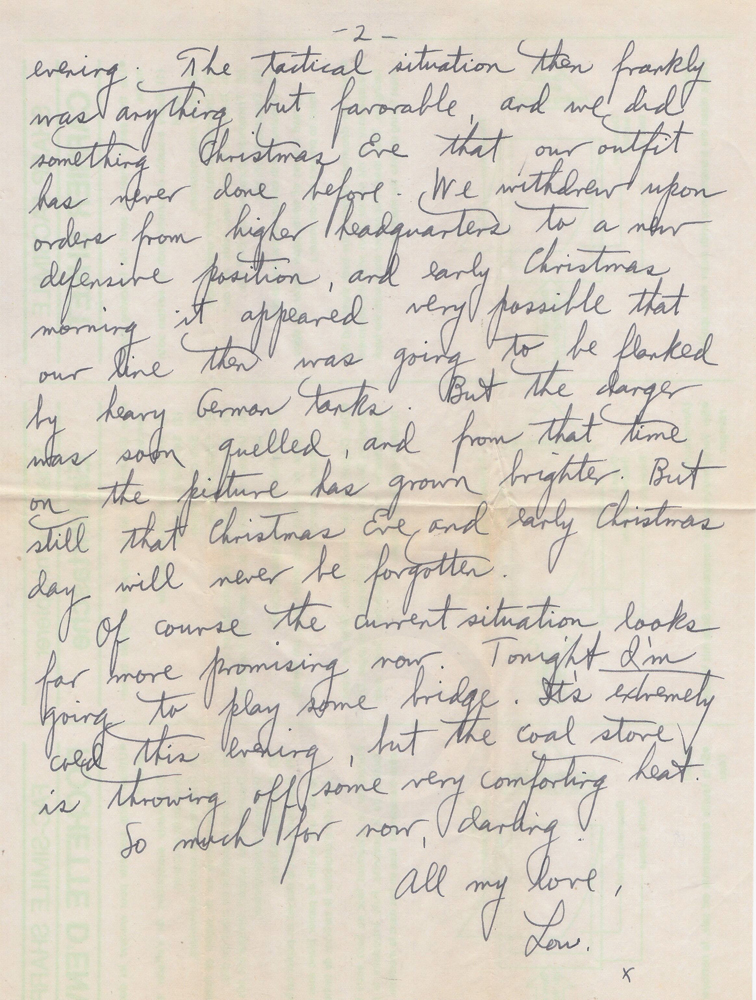 -2-
evening. The tactical situation then frankly
was anything but favorable, and we did
something Christmas Eve that our outfit
has never done before. We withdrew upon
orders from higher headquarters to a new
defensive position, and early Christmas
morning it appeared very possible that
our line then was going to be flanked
by heavy German tanks. But the danger
was soon quelled, and from that time
on the picture has grown brighter. But
still that Christmas Eve and early Christmas
day will never be forgotten.
Of course the current situation looks
far more promising now. Tonight I'm
going to play some bridge. It's extremely
cold this evening, but the coal stove
is throwing off some very comforting heat.
So much for now, darling.
All my love,
Low.
x